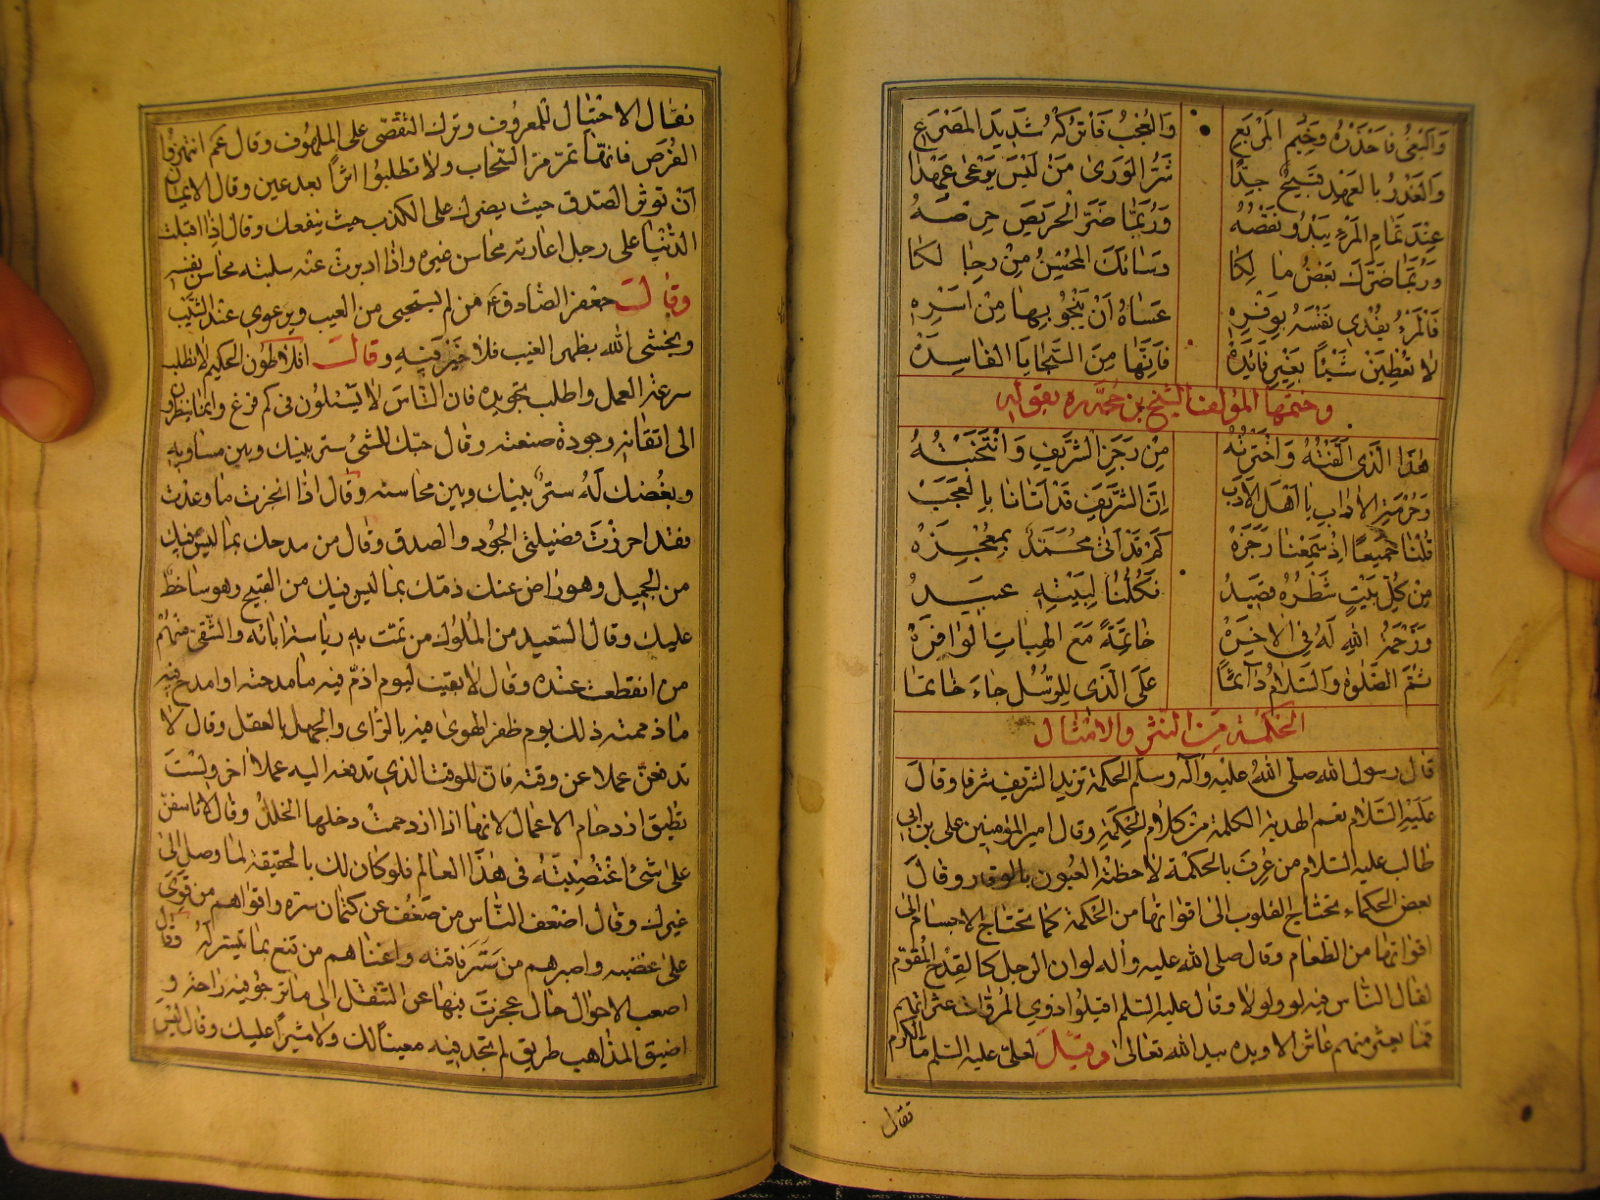 وَالبَغْيُ فَاحْذَرْهُ وَخِيْمُ المَرْبَعِ وَالعُجْبُ فَاتْرُكْهُ شَدِيْدَ المَصْرَعِ
وَالغَدْرُ بِالعَهْدِ قَبِيْحٌ جِدًّا شَرُّ الوَرَىٰ مَنْ لَيْسَ يَرْعىٰ عَهْدًا
عِنْدَ تَمَامِ المَرْءِ يَبْدُو نَقْصُهُ وَرُبَمَّا ضَرَّ الْحَرِيْصَ حِرْصُهُ
وَرُبَمَّا ضَرَّكَ بَعْضُ مَا لِكَا وَسَائَكَ المُحْسِنُ مِنْ رِجَالِكَا
فَالمَرْءُ يَفْدِي نَفْسَهُ بِوَفْرِهِ عَسَاهُ اَنْ يَنْجُو بِهَا مِنْ اَسْرِهِ
لَا تُعْطِيَنْ شَيْئاً بِغَيْرِ فَائِدَةْ فَاِنَّهَا مِنَ السَّجَايَا الفَاسِدَةْ
وختمها المؤلفنا الشيخ بن حجة ره بقوله
هٰذَا الَّذِي اَلَّفْتُهُ وَاخْتَرْتُهُ مِنْ رَجَزِ الشَّرِيْفِ وَانْتَخَبْتُهُ
وَحُرْمَةِ الآدَابِ يَا اَهْلَ الاَدَبِ اِنَّ الشَّرِيْفَ قَدْ اَتَانَا بِالْعَجَبْ
قُلْنَا جَمِيْعاً اِذْ سَمِعْنَا رَجَزَهْ كَمْ قَدْ اَتىٰ مُحَمَّدٌ بِمُعْجِزَهْ
مِنْ كُلِّ بَيْتٍ شَطْرُهُ قَصِيْدُ فَكُلُّنَا لِبَيْتِهِ عَبِيْدُ
وَرَحْمَةُ اللهِ لَهُ فِي الآخِرَهْ خَاتِمَةً مَعَ الهِبَاتِ الوَافِرَهْ
ثُمَّ الصَّلٰوةُ وَالسَّلَامُ دَائِمًا عَلَى الَّذِي لِلرُّسُلِ جَاءَ خَاتِمًا
الحكمة من النثر والامثال
قال رسول الله صلى الله عليه وآله وسلم الحكمة تزيد الشريف شرفا وقال
عليه السلام نعم الهدية الكلمة من كلام الحكمة وقال امير المؤمنين على بن ابى
طالب عليه السلام من عرف بالحكمة لاحظته العيون بالوقار وقال
بعض الحكماء تحتاج القلوب الى اقواتها من الحكمة كما تحتاج الاجسام الى
اقواتها من الطعام وقال صلى الله عليه وآله لو ان الرجل كالقدح المقوم
لقال الناس فيه لو ولولا وقال عليه السلم اقيلوا ذوي المروات عثراتهم
فما يعثر منهم عاثر الا ويده بيد الله تعالى وقيل لعلى عليه السلم ما الكرم
فقال
فقال الاحتيال للمعروف وترك التقصى على الملهوف وقال عم انتهزوا
الفرص فانها تمر مر السحاب ولا تطلبوا اثراً بعد عين وقال الايمان
ان توثر الصدق حيث يضرك على الكذب حيث ينفعك وقال اذا اقبلت
الدنيا على رجل اعارته محاسن غيره واذا ادبرت عنه سلبته محاسن نفسه
وقال جعفر الصادق ع من لم يستحيى من العيب ويرعوى عند الشيب
ويخشى الله بظهر الغيب فلا خير فيه وقال افلاطون الحكيم لا تطلب
سرعة العمل واطلب تجويده فان الناس لا يسئلون فى كم فرغ وانما ينظرون
الى اتقانه وجودة صنعته وقال حبك للشئ ستر بينك وبين مساويه
وبغضك له ستر بينك وبين محاسنه وقال اذا انجزت ما وعدت
فقد احرزت فضيلتى الجود والصدق وقال من مدحك بما ليس فيك
من الجميل وهو راض عنك ذمك بما ليس فيك من القبيح وهو ساخط
عليك وقال السعيد من الملوك من تمت به رياسة ابائه والشقى منهم
من انقطعت عنده وقال لا بقيت ليوم اذم فيه ما مدحته او امدح فيه
ما ذممته ذلك يوم ظفر الهوى فيه بالراى والجهل بالعقل وقال لا
تدفعن عملا عن وقته فان للوقت الذى تدفعه اليه عملا اخر ولست
تطيق ازدحام الاعمال لانها اذا ازدحمت دخلها الخلل وقال لا تاسفن
على شئ اغتصبته فى هذا العالم فلو كان لك بالحقيقة لما وصل الى
غيرك وقال اضعف الناس من ضعف عن كتمان سره واقواهم من قوى
على غضبه واصبرهم من ستر فاقته واغناهم من قنع بما تيسر له وقال
اصعب الاحوال حال عجزت فيها عن التنقل الى ما ترجو فيه راحة و
اضيق المذاهب طريق لم تجد فيه معينا لك ولا مشيراً عليك وقال